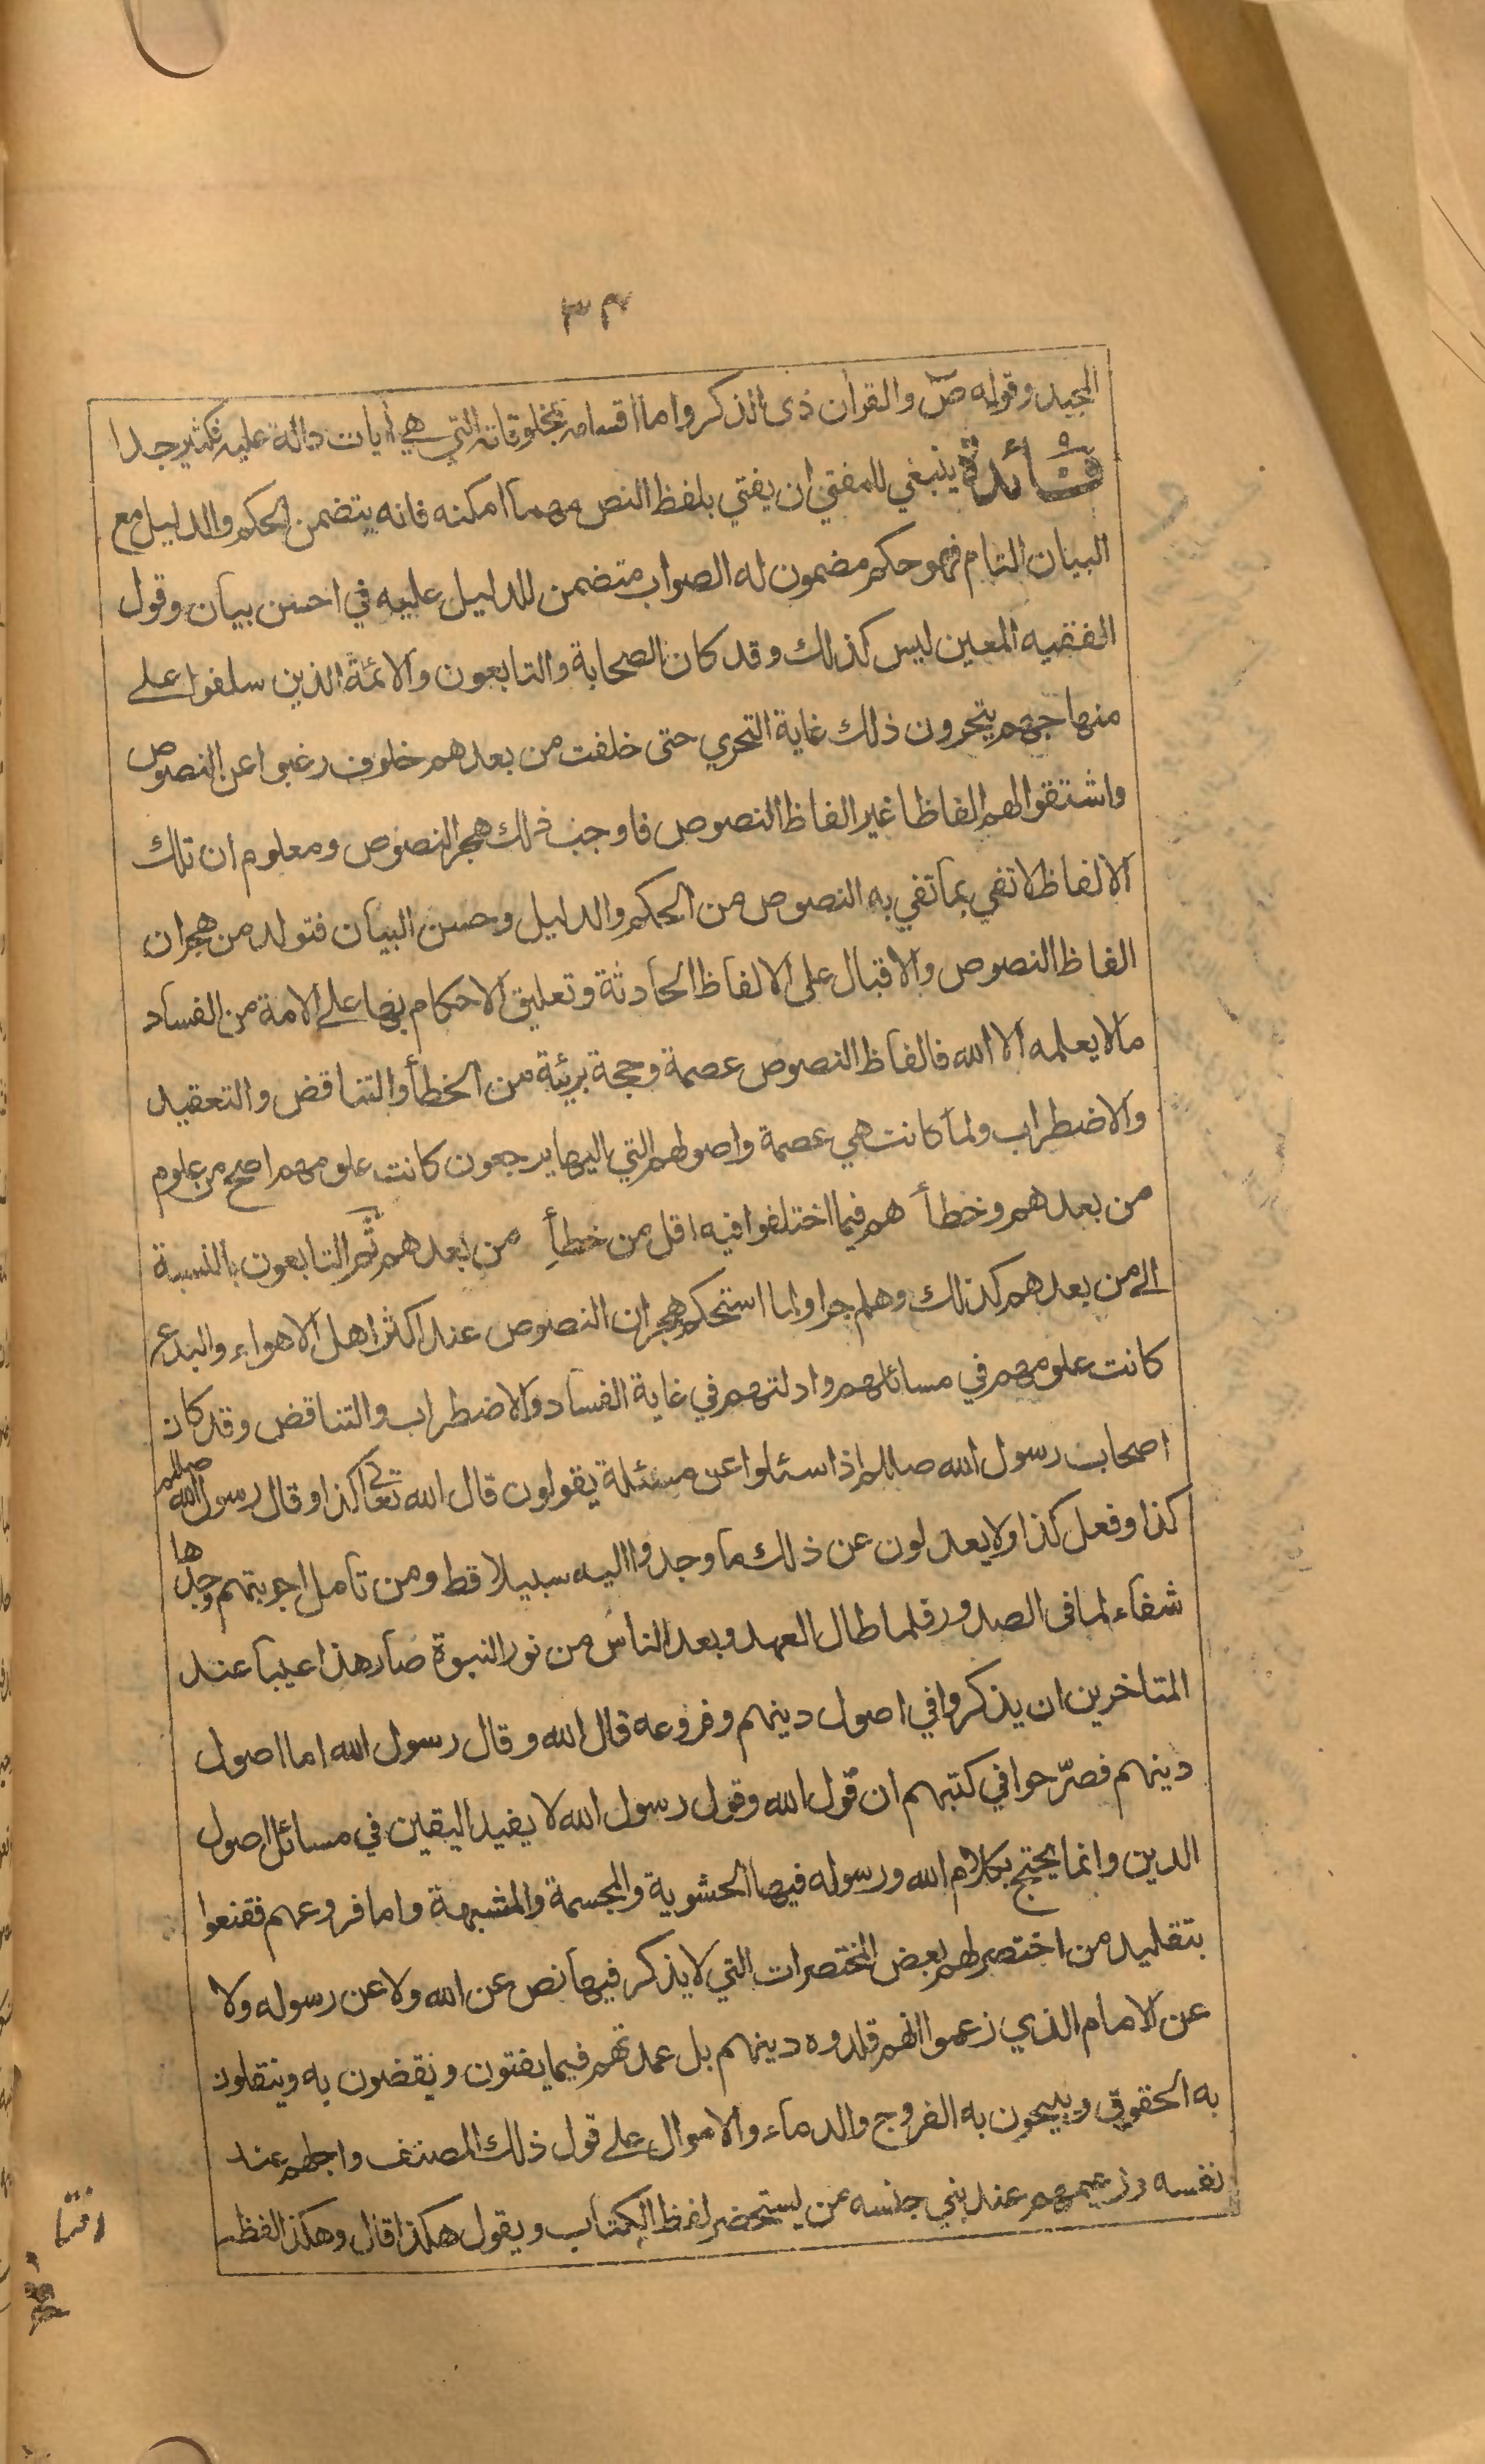 ٣٤
المجيد وقوله صٓ والقرأن ذى الذكر واما اقسامه بمخلوقاته التي هي أيات دالة عليه فكثير جدا
فائدة ينبغي للمفتي ان يفتي بلفظ النص مهما امكنه فانه يتضمن الحكم والدليل مع
البيان التام فهو حكم مضمون له الصواب متضمن للدليل عليه في احسن بيان وقول
الفقيه المعين ليس كذلك وقد كان الصحابة والتابعون والائمة الذين سلفوا على
منهاجهم يتحرون ذلك غاية التحري حتى خلفت من بعدهم خلوف رغبوا عن النصوص
واشتقوا لهم الفاظا غير الفاظ النصوص فاوجب ذلك هجر النصوص ومعلوم ان تلك
الالفاظ لا تفي بما تفي به النصوص من الحكم والدليل وحسن البيان فتولد من هجران
الفاظ النصوص والاقبال على الالفاظ الحادثة وتعليق الاحكام بها على الامة من الفساد
مالا يعلمه الا الله فالفاظ النصوص عصمة وحجة بريئة من الخطأ والتناقض والتعقيد
والاضطراب ولما كانت هي عصمة واصولهم التي اليها يرجعون كانت علومهم اصح من علوم
من بعدهم وخطأ هم فيما اختلفوا فيه اقل من خطأِ من بعدهم ثم التابعون بالنسبة
الى من بعدهم كذلك وهلم جرا ولما استحكم هجران النصوص عند اكثر اهل الاهواء والبدع
كانت علومهم في مسائلهم وادلتهم في غاية الفساد والاضطراب والتناقض وقد كان
اصحاب رسول الله صللم اذا سئلوا عن مسئلة يقولون قال الله تعالى كذا وقال رسول الله صللم
كذا وفعل كذا ولا يعدلون عن ذلك ما وجدوا اليه سبيلا قط ومن تامل اجوبتهم وجدها
شفاء لما فى الصدور فلما طال العهد وبعد الناس من نور النبوة صار هذا عيبا عند
المتاخرين ان يذكروا في اصول دينهم وفروعه قال الله وقال رسول الله اما اصول
دينهم فصرّحوا في كتبهم ان قول الله وقول رسول الله لا يفيد اليقين في مسائل اصول
الدين وانما يحتج بكلام الله ورسوله فيها الحشوية والمجسمة والمشبهة واما فروعهم فقنعوا
بتقليد من اختصر لهم بعض المختصرات التي لا يذكر فيها نص عن الله ولا عن رسوله ولا
عن الامام الذي زعموا انهم قلدوه دينهم بل عمدتهم فيما يفتون ويقضون به وينقلون
به الحقوق ويبيحون به الفروج والدماء والاموال على قول ذلك المصنف واجلهم عند
نفسه وزعيمهم عند بني جنسه من يستحضر لفظ الكتاب ويقول هكذا قال وهكذا لفظه